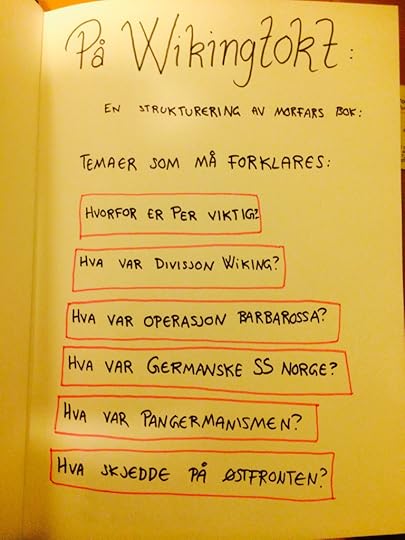 På Wikingtokt:
EN STRUKTURERING AV MORFARS BOK:
TEMAER SOM MÅ FORKLARES:
HVORFOR ER PER VIKTIG?
HVA VAR DIVISJON WIKING?
HVA VAR OPERASJON BARBAROSSA?
HVA VAR GERMANSKE SS NORGE?
HVA VAR PANGERMANISMEN?
HVA SKJEDDE PÅ ØSTFRONTEN?